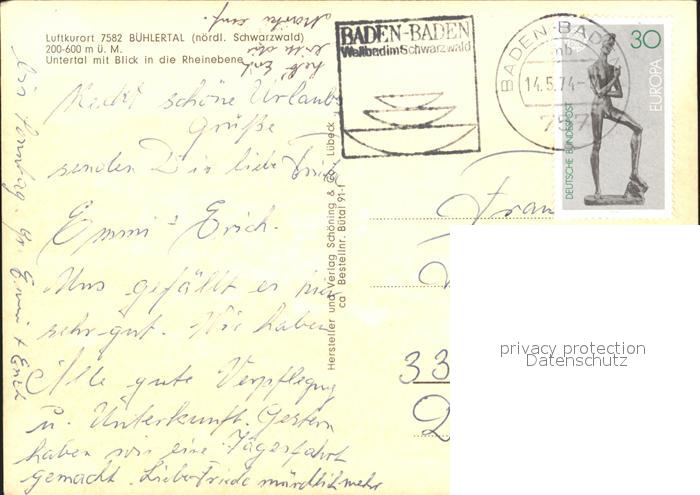 Luftkurort 7582 BÜHLERTAL (nördl. Schwarzwald)
200-600 m ü. M.
Untertal mit Blick in die Rheinebene
Recht schöne Urlaubs
Grüße
senden Dir liebe
Emmi & Erich.
Uns gefällt es hier
sehr gut. Wir haben
gute Verpflegung
u. Unterkunft. Gestern
haben wir eine Tagesfahrt
gemacht. Liebe Friede mündlich mehr
Bis Sonntag. Gr. Emmi + Erich
Hersteller und Verlag Schöning & Co, Lübeck
Bestellnr. Bütal 91-f
BADEN-BADEN
Weltbad im Schwarzwald
BADEN-BADEN
mb
14.5.74
757
30
EUROPA
DEUTSCHE BUNDESPOST
33
privacy protection
Datenschutz